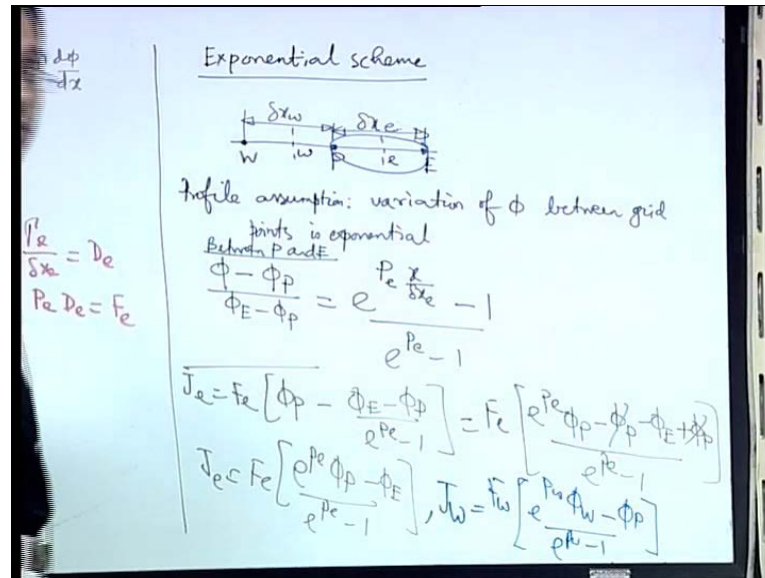 dφ
dx
Γe / δxe = De
Pe De = Fe
Exponential scheme
δxw δxe
W w P e E
Profile assumption: variation of φ between grid
points is exponential
Between P and E
(φ - φP) / (φE - φP) = (e^(Pe x/δxe) - 1) / (e^Pe - 1)
Je = Fe [φP - (φE - φP) / (e^Pe - 1)] = Fe [(e^Pe φP - φP - φE + φP) / (e^Pe - 1)]
Je = Fe [(e^Pe φP - φE) / (e^Pe - 1)], Jw = Fw [(e^Pw φW - φP) / (e^Pw - 1)]